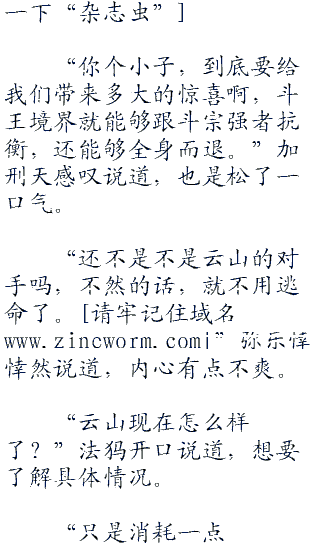 一下“杂志虫”]
“你个小子，到底要给
我们带来多大的惊喜啊，斗
王境界就能够跟斗宗强者抗
衡，还能够全身而退。”加
刑天感叹说道，也是松了一
口气。
“还不是不是云山的对
手吗，不然的话，就不用逃
命了。[请牢记住域名
www.zincworm.com|”弥乐悻
悻然说道，内心有点不爽。
“云山现在怎么样
了？”法犸开口说道，想要
了解具体情况。
“只是消耗一点